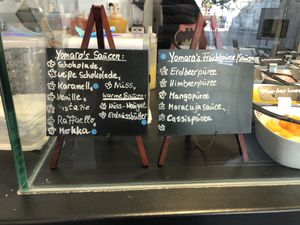 Yomaro's Saucen:
Schokolade,
weiße Schokolade,
Karamell,
Vanille,
Pistazie
Raffaello,
Mokka
Nüss,
Warme Saucen:
Nuss-Nougat
Erdnussbutter
Yomaro's Fruchtpüree/Saucen:
Erdbeerpüree
Himbeerpüree
Mangopüree
Maracujasauce,
Cassispüree